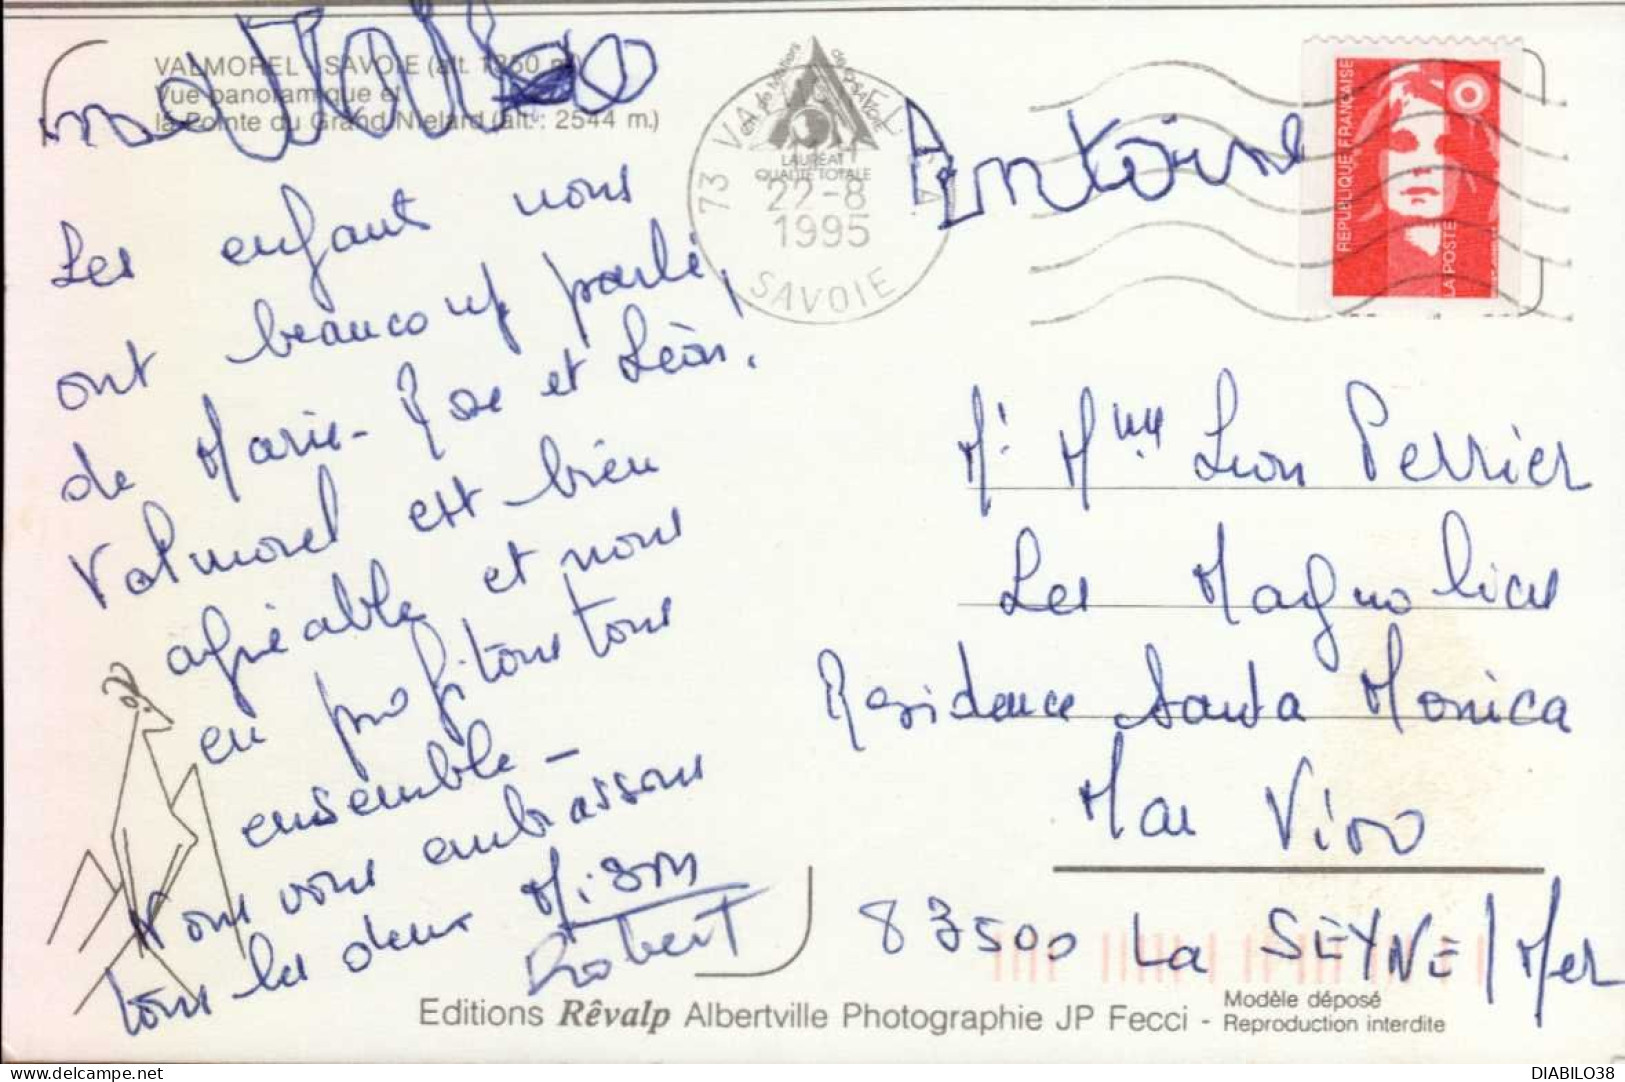 VALMOREL SAVOIE (alt. 1350 m)
Vue panoramique et
la Pointe du Grand Niélard (alt. : 2544 m.)
Antoine
Les enfants nous
ont beaucoup parlé,
de Marie-Rose et Léon!
Valmorel est bien
agréable et nous
en profitons tous
ensemble -
Nous vous embrassons
tous les deux
Robert
73 VALMOREL
LAURÉAT
QUALITÉ TOTALE
22-8
1995
SAVOIE
RÉPUBLIQUE FRANÇAISE
LA POSTE
Mr Mme Léon Perrier
Les Magnolias
Résidence Santa Monica
Mar Vivo
83500 La SEYNE / Mer
Editions Rêvalp Albertville Photographie JP Fecci - Modèle déposé
Reproduction interdite
DIABILO38